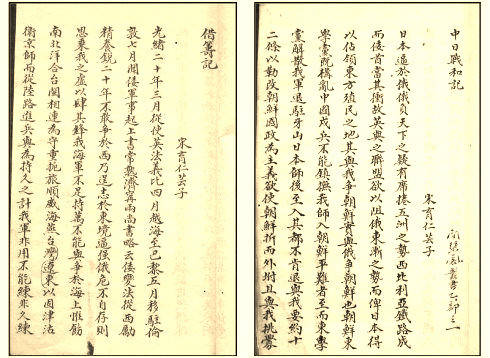 中日戰和記
叢書乙部之一
宋育仁芸子
日本逼於俄俄負天下之疑有席捲五洲之勢西比利亞鐵路成
而後首當其衝故英與之聯盟欲以阻俄東漸之勢而俾日本得
以佔領東方殖民之地其與我爭朝鮮實與俄爭朝鮮也朝鮮東
學黨既構亂中國戍兵不能鎮撫我師入朝鮮平難者至而東學
黨解散我軍退駐牙山日本師後至入其都不肯退與我要約十
二條以勒改朝鮮國政為主義欲使朝鮮折而外附且與我挑釁
借籌記
宋育仁芸子
光緒二十年三月從使英法義比四月越海至巴黎五月移駐倫
敦七月聞倭軍事起上書常熟濟寧兩尚書略云倭變法從西勵
精養銳二十年不敢爭於西乃逞志於東境逼強俄危不自存則
思乘我之虛以肆其鋒我海軍不足持萬不能與爭於海上惟飭
南北洋合台閩相連為守重扼旅順威海燕台灣遼東以固津沽
衛京師而從陸路進兵與為持久之計我軍非用不能練非久練